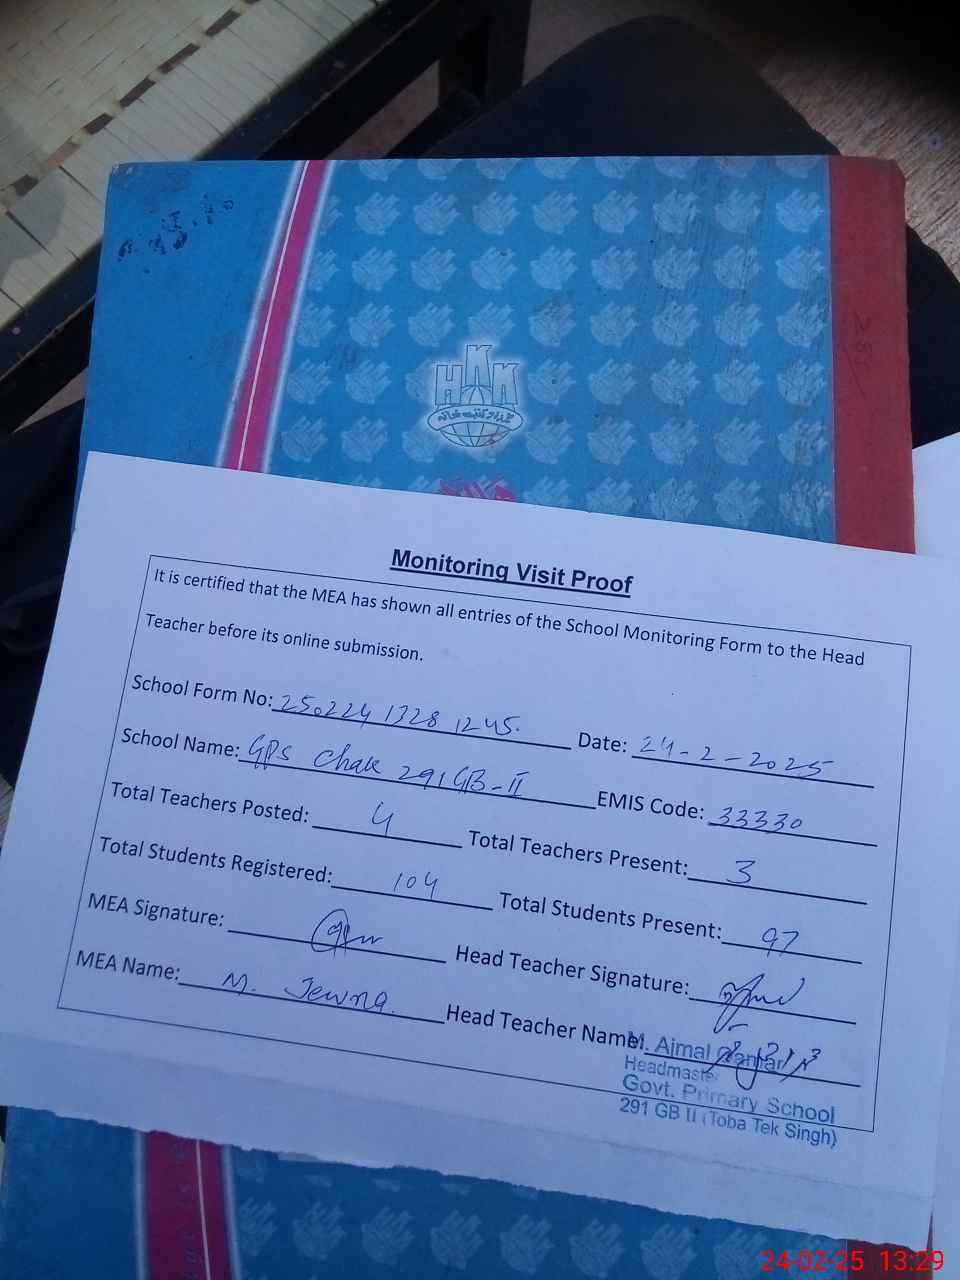 HKK
Monitoring Visit Proof
It is certified that the MEA has shown all entries of the School Monitoring Form to the Head
Teacher before its online submission.
School Form No: 250224 1328 1245. Date: 24-2-2025
School Name: GPS Chak 291 GB-II EMIS Code: 33330
Total Teachers Posted: 4 Total Teachers Present: 3
Total Students Registered: 104 Total Students Present: 97
MEA Signature: Head Teacher Signature:
MEA Name: M. Head Teacher Name:
M. Ajmal
Headmaster
Govt. Primary School
291 GB II (Toba Tek Singh)
24-02-25 13:29